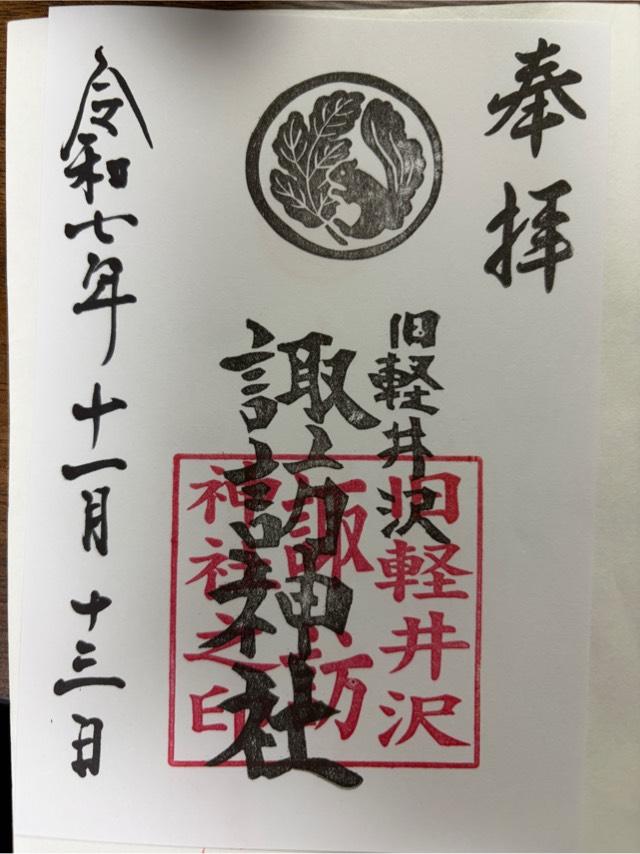 奉拝
旧軽井沢
諏訪神社
旧軽井沢
諏訪
神社之印
令和七年十一月十三日